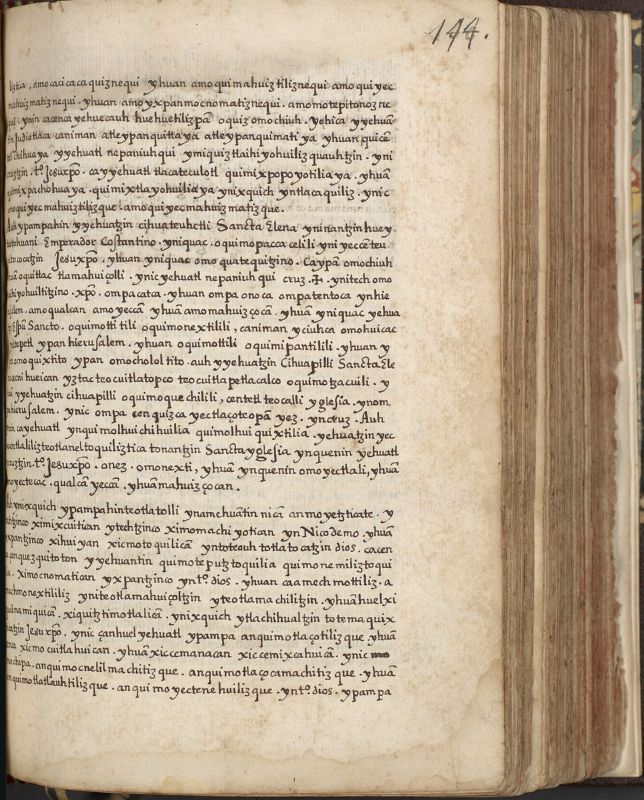 144.
liztica . amo cacicaca quiznequi yhuan amo quimahuiztiliznequi amo quiyec
mahuizmatiznequi . yhuan amo yxpan mocnomatiznequi . amo motepitonoznc
qui . ynin cacenca yehuecauh huehuetilizpã oquiz omochiuh . yehica yyehuã
tin Judiotlaca caniman atleypanquittaya atleypanquimatiya yhuan quicen
telchihuaya yyehuatl nepaniuhqui ymiquiztlaihiyohuilizquauhtzin . yni
cruztzin . tº. Jesuxpõ . ca yyehuatl tlacateculotl quimixpopoyotiliaya . yhuã
quimixpachohuaya . quimixtlayohuiliaya ynixquich yntlacaquiliz . ynic
amo quiyecmahuiztilizque . amo quiyecmahuizmatizque .
Auh ypampahin yyehuatzin cihuateuhctli Sancta Elena yninantzin huey
tlatohuani Emperador Costantino . yniquac . oquimopaccacelili yniyecca teu
yotocatzin Jesuxpõ . yhuan yniquac omoquatequitzino . Caypã omochiuh
ypã oquittac tlamahuiçolli . ynic yehuatl nepaniuhqui cruz . ✠ . ynitech omo
tlaihiyohuiltitzino . xpõ . ompa catca . yhuan ompa onoca ompa tentoca ynhie
rusalem . amo qualcan amo yeccã yhuã amo mahuizçocã . yhuã yniquac yehua
tzin Espũ Sancto . oquimottitili oquimonextilili, caniman yciuhca omohuicac
ynaltepetl ypan hierusalem . yhuan oquimottili oquimipantilili . yhuan y
pan omoquixtito ypan omochololtito . auh yyehuatzin Cihuapilli Sancta Ele
na occni hueican yztac teocuitlatopco teocuitlapetlacalco oquimotzacuili . y
hui yyehuatzin cihuapilli oquimoquechilili, centetl teocalli yglesia . ynom
pa hierusalem . ynic ompa cenquizca yectlaçoteopã yez . yncruz . Auh
ynin ca yehuatl ynquimolhuichihuilia quimolhuiquixtilia . yehuatzin yec
neltlaliliztlateotlaneltoquiliztica tonantzin Sancta yglesia ynquenin yehuatl
cruztzin . tº. Jesuxpõ . onez . omonexti, yhuã ynquenin omoyectlali, yhuã
omoyectecac . qualcã yeccã . yhuã mahuizçocan .
Auh ynixquich ypampahin teotlatolli ynamehuãtin nicã anmoyetzticate . y
tech̃tzinco ximixcuitican ytechtzinco ximomachiyotican yn Nicodemo . yhuã
yxpantzinco xihuiyan xicmotoquilicã yntoteouh totlatocatzin dios . cacen
ca anquezquitoton yyehuantin quimoteputztoquilia quimonemiliztoqui
lia . Ximocnomatican yxpantzinco yntº. dios . yhuan caamechmottiliz . a
mechmonextililiz yniteotlamahuiçoltzin yteotlamachiliztzin . yhuã huelxi
qualnamiquicã . xiquitztimotlalicã . ynixquich ytlachihualtzin totemaquix
ticatzin Jesuxpõ . ynic çanhuel yehuatl ypampa anquimotlaçotilizque yhuã
cenca xicmocuitlahuican . yhuã xiccemanacan xiccemixcahuicã . ynic
mochipa . anquimocnelilmachitizque . anquimotlaçocamachitizque . yhuã
anquimotlatlauhtilizque . anquimoyectenehuilizque . yntº. dios . ypampa